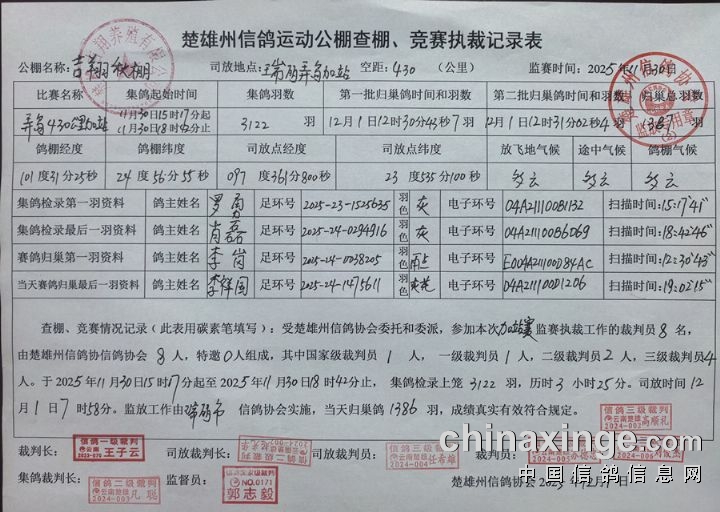 楚雄州信鸽运动公棚查棚、竞赛执裁记录表
公棚名称:吉翔秋棚 司放地点:瑞丽弄岛加站 空距:430 (公里) 监赛时间:2025年11月30日
比赛名称 集鸽起始时间 集鸽羽数 第一批归巢鸽时间和羽数 第二批归巢鸽时间和羽数 归巢总羽数
弄岛430公里加站 11月30日15时17分起 11月30日18时42分止 3122 羽 12月1日12时30分43秒7羽 12月1日12时31分02秒4羽 羽
鸽棚经度 鸽棚纬度 司放点经度 司放点纬度 放飞地气候 途中气候 鸽棚气候
101度31分25秒 24度56分55秒 097度361分800秒 23度535分100秒 多云 多云 多云
集鸽检录第一羽资料 鸽主姓名 罗勇 足环号 2025-23-1525635 羽色 灰 电子环号 04A21100B1132 扫描时间:15:17'41"
集鸽检录最后一羽资料 鸽主姓名 肖磊 足环号 2025-24-0294916 羽色 灰 电子环号 04A21100B6D69 扫描时间:18:42'46"
赛鸽归巢第一羽资料 鸽主姓名 李岗 足环号 2025-24-0038205 羽色 雨点 电子环号 E004A21100D84AC 扫描时间:12:30'43"
当天赛鸽归巢最后一羽资料 鸽主姓名 李祥国 足环号 2025-24-1475611 羽色 灰花 电子环号 04A21100D1206 扫描时间:19:02'15"
查棚、竞赛情况记录(此表用碳素笔填写):受楚雄州信鸽协会委托和委派,参加本次加站赛监赛执裁工作的裁判员8名,
由楚雄州信鸽协信鸽协会 8 人,特邀0人组成,其中国家级裁判员 1 人,一级裁判员 1 人,二级裁判员 2 人,三级裁判员 4
人。于2025年11月30日15时17分起至2025年11月30日18时42分止,集鸽检录上笼 3122 羽,历时 3 小时25分。司放时间12
月1日7时58分。监放工作由瑞丽市信鸽协会实施,当天归巢鸽 1386 羽,成绩真实有效符合规定。
信鸽三级裁判 云南楚雄 2024-002 高顺礼
裁判长: 信鸽一级裁判 云南 王子云 司放裁判长: 信鸽二级裁判 裁判员: 信鸽三级裁判 云南楚雄 2024-004 裁判员:
集鸽裁判长: 信鸽二级裁判 云南楚雄 2024-003 凡聪 监督员: 信鸽裁判 NO.0171 郭志毅 楚雄州信鸽协会 2025年12月1日
chinaxinge.com
中国信鸽信息网